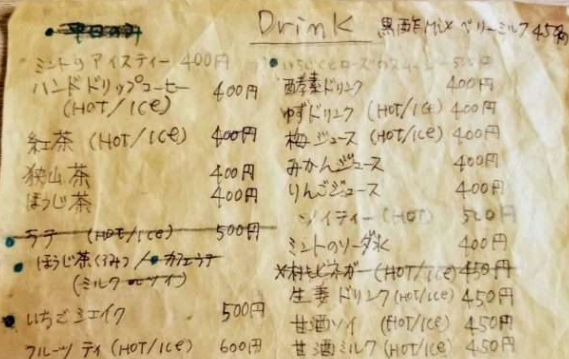 Drink
黒酢Mixベリーミルク 450円
ミントのアイスティー 400円
ハンドドリップコーヒー 400円
(HOT/ICE)
紅茶 (HOT/ICE) 400円
狭山茶 400円
ほうじ茶 400円
(HOT/ICE) 500円
ほうじ茶 / カフェラテ
(ミルク or ソイ)
いちごシェイク 500円
フルーツティ (HOT/ICE) 600円
いちじくとローズの 500円
酵素ドリンク 400円
ゆずドリンク (HOT/ICE) 400円
梅ジュース (HOT/ICE) 400円
みかんジュース 400円
りんごジュース 400円
ソイティー (HOT) 500円
ミントのソーダ水 400円
ビネガー (HOT/ICE) 450円
生姜ドリンク (HOT/ICE) 450円
甘酒ソイ (HOT/ICE) 450円
甘酒ミルク (HOT/ICE) 450円